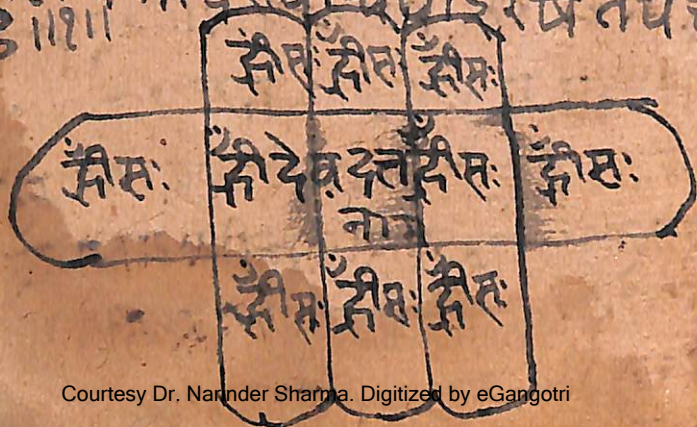 ॥१॥
ह्रीँसः ह्रीँसः ह्रीँसः
ह्रीँसः ह्रीँ देवदत्त ह्रीँसः ह्रीँसः
नाम
ह्रीँसः ह्रीँसः ह्रीँसः
Courtesy Dr. Narinder Sharma. Digitized by eGangotri